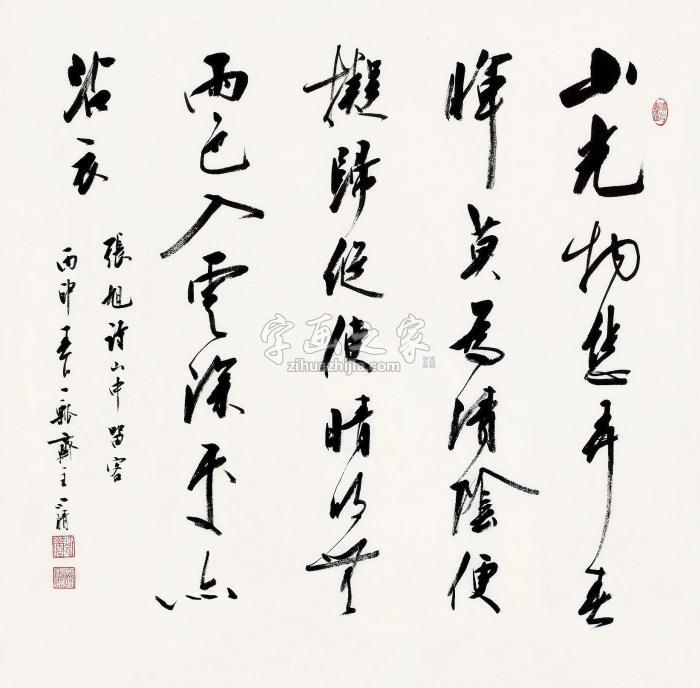 山光物態弄春
暉莫為清陰便
擬歸縱使晴明無
雨色入雲深處亦
沾衣
張旭詩山中留客
丙申春一瓢齋主一清
字画之家
zihunzhijia.com